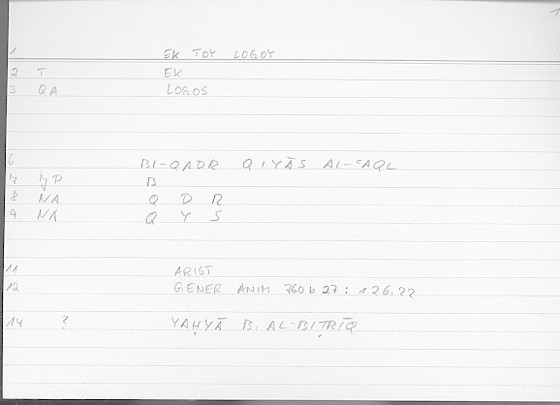 1 EK TOY LOGOY
2 T EK
3 QA LOGOS
6 BI-QADR QIYĀS AL-ʿAQL
7 B
8 NA Q D R
9 NA Q Y S
11 ARIST
12 GENER ANIM 760 b 27 : 126.22
14 ? YAḤYĀ B. AL-BIṬRĪQ